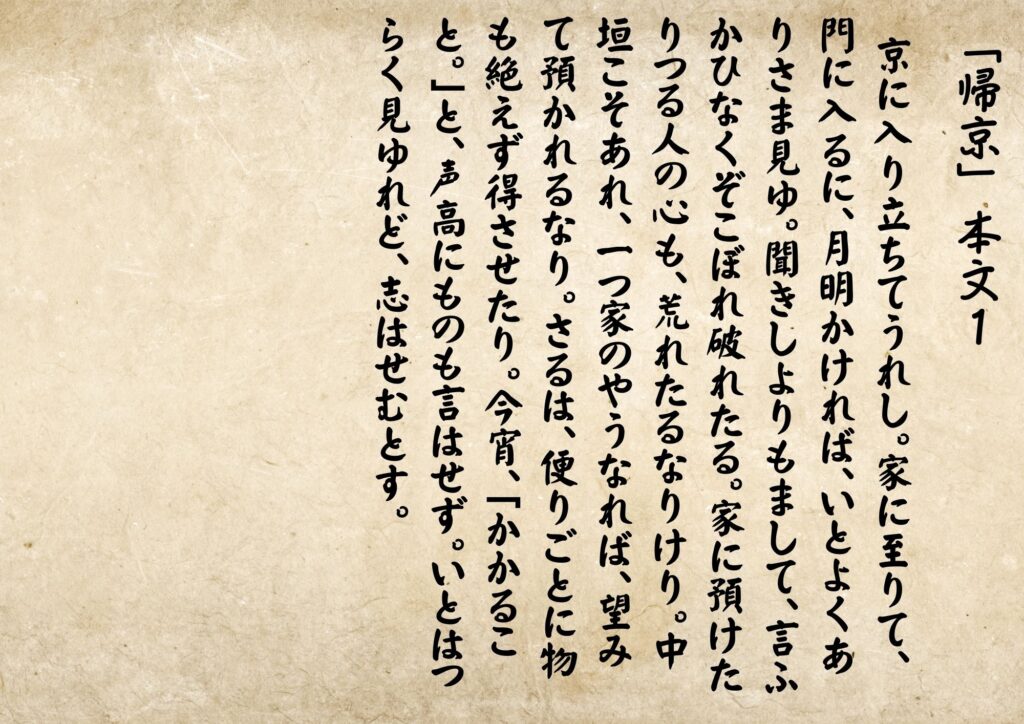 「帰京」 本文1
京に入り立ちてうれし。家に至りて、
門に入るに、月明かければ、いとよくあ
りさま見ゆ。聞きしよりもまして、言ふ
かひなくぞこぼれ破れたる。家に預けた
りつる人の心も、荒れたるなりけり。中
垣こそあれ、一つ家のやうなれば、望み
て預かれるなり。さるは、便りごとに物
も絶えず得させたり。今宵、「かかるこ
と。」と、声高にものも言はせず。いとはつ
らく見ゆれど、志はせむとす。